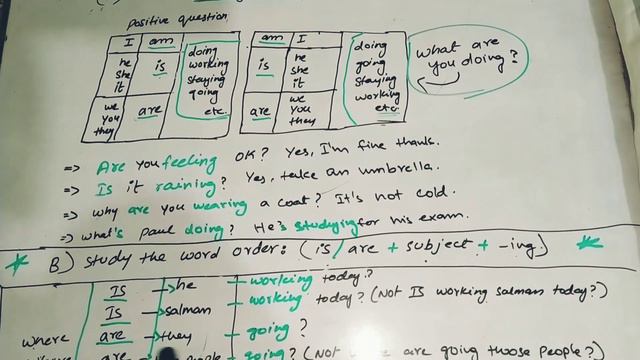 positive question
I am doing
he she it is working staying going
we you they are etc.
am I doing
is he she it going staying
are we you they working etc
what are you doing?
=> Are you feeling OK? Yes, I'm fine thanks.
=> Is it raining? Yes, take an umbrella.
=> why are you wearing a coat? It's not cold.
=> what's paul doing? He's studying for his exam.
* B) study the word order: (is/are + subject + -ing) *
Is → he – working today?
Is → salman – working today? (Not IS working salman today?)
where are → they – going?
are people – going? (Not are going those people?)